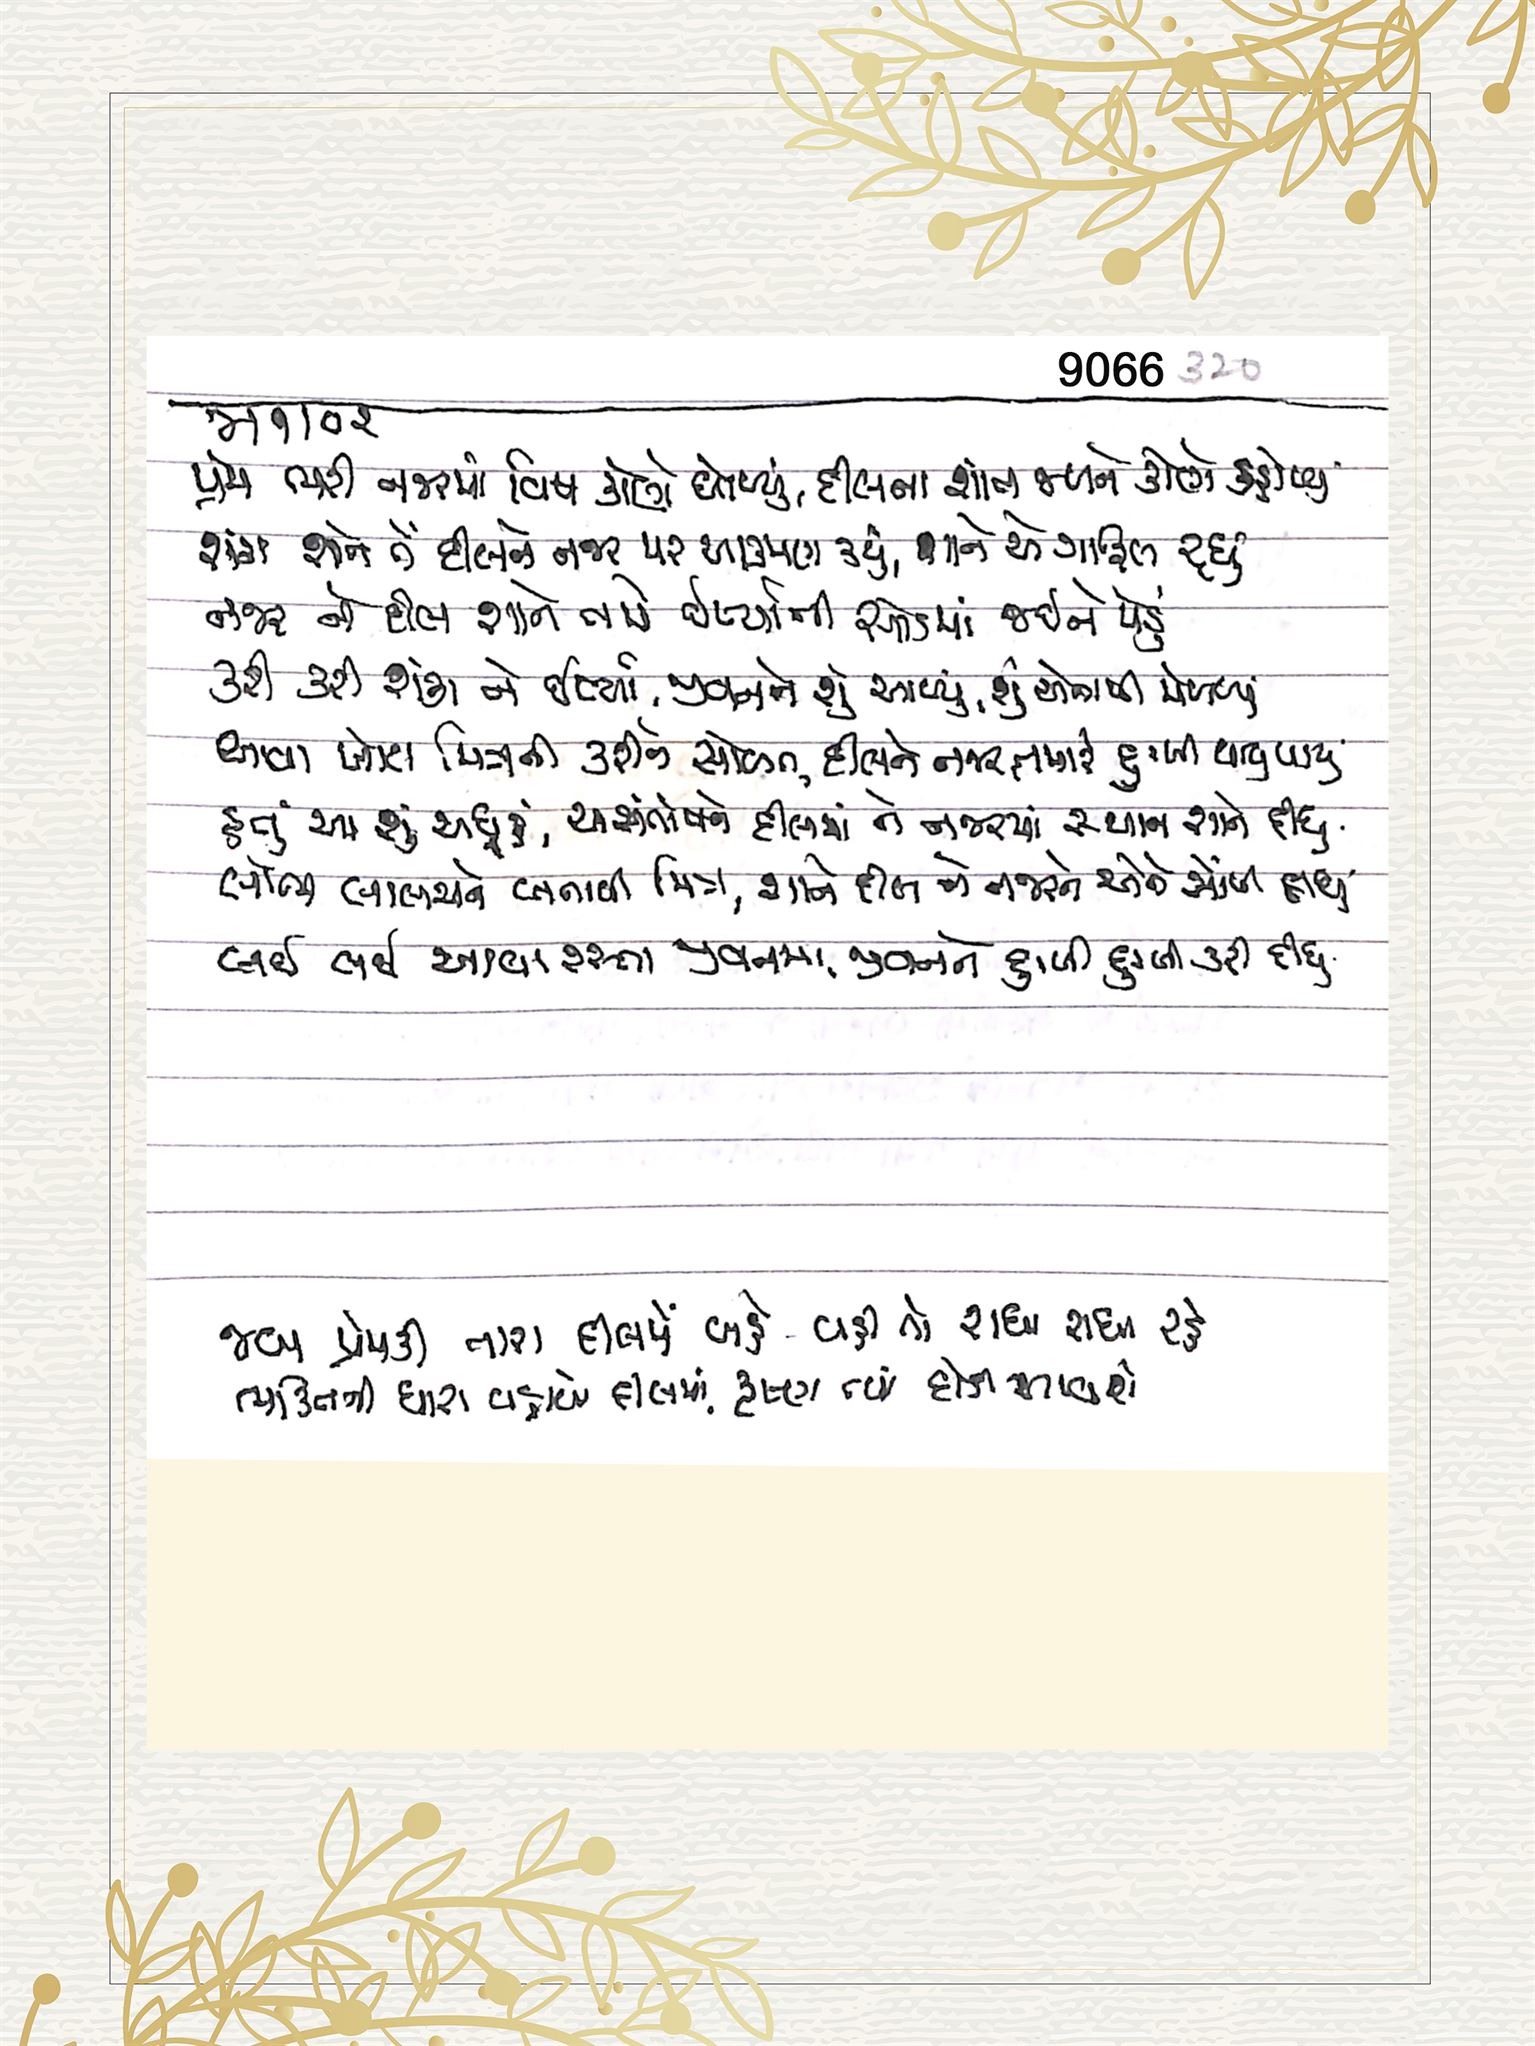 9066 320
પ્રેમ ભરી નજરમાં વિષ કોણે ઘોળ્યું, દીલના શાંત જળને કોણે ડહોળ્યું
શંકા શાને તેં દીલને નજર પર આક્રમણ કર્યું, શાને એ ગાફિલ રહ્યું
નજર ને દીલ શાને તમે ઈર્ષ્યાની સોડમાં જઈને પેઠું
કરી કરી શંકા ને ઈર્ષ્યા, જીવનને શું આપ્યું, શું એમાંથી મેળવ્યું
આવા ખોટા મિત્રની કરીને સોબત, દીલને નજર તમારે દુઃખી થાવું પડયું
હતું આ શું અધૂરું, અસંતોષને દીલમાં ને નજરમાં સ્થાન શાને દીધું
લોભ લાલચને બનાવી મિત્ર, શાને દીલ ને નજરને એને સોંપી દીધું
લઈ લઈ આવા રસ્તા જીવનમાં, જીવનને દુઃખી દુઃખી કરી દીધું
જ્યાં પ્રેમથી તારા દીલમેં બહે વહી તો રાધા રાધા રહે
ભક્તિની ધારા વહાવો દીલમાં, કૃષ્ણ ત્યાં દોડી આવશે